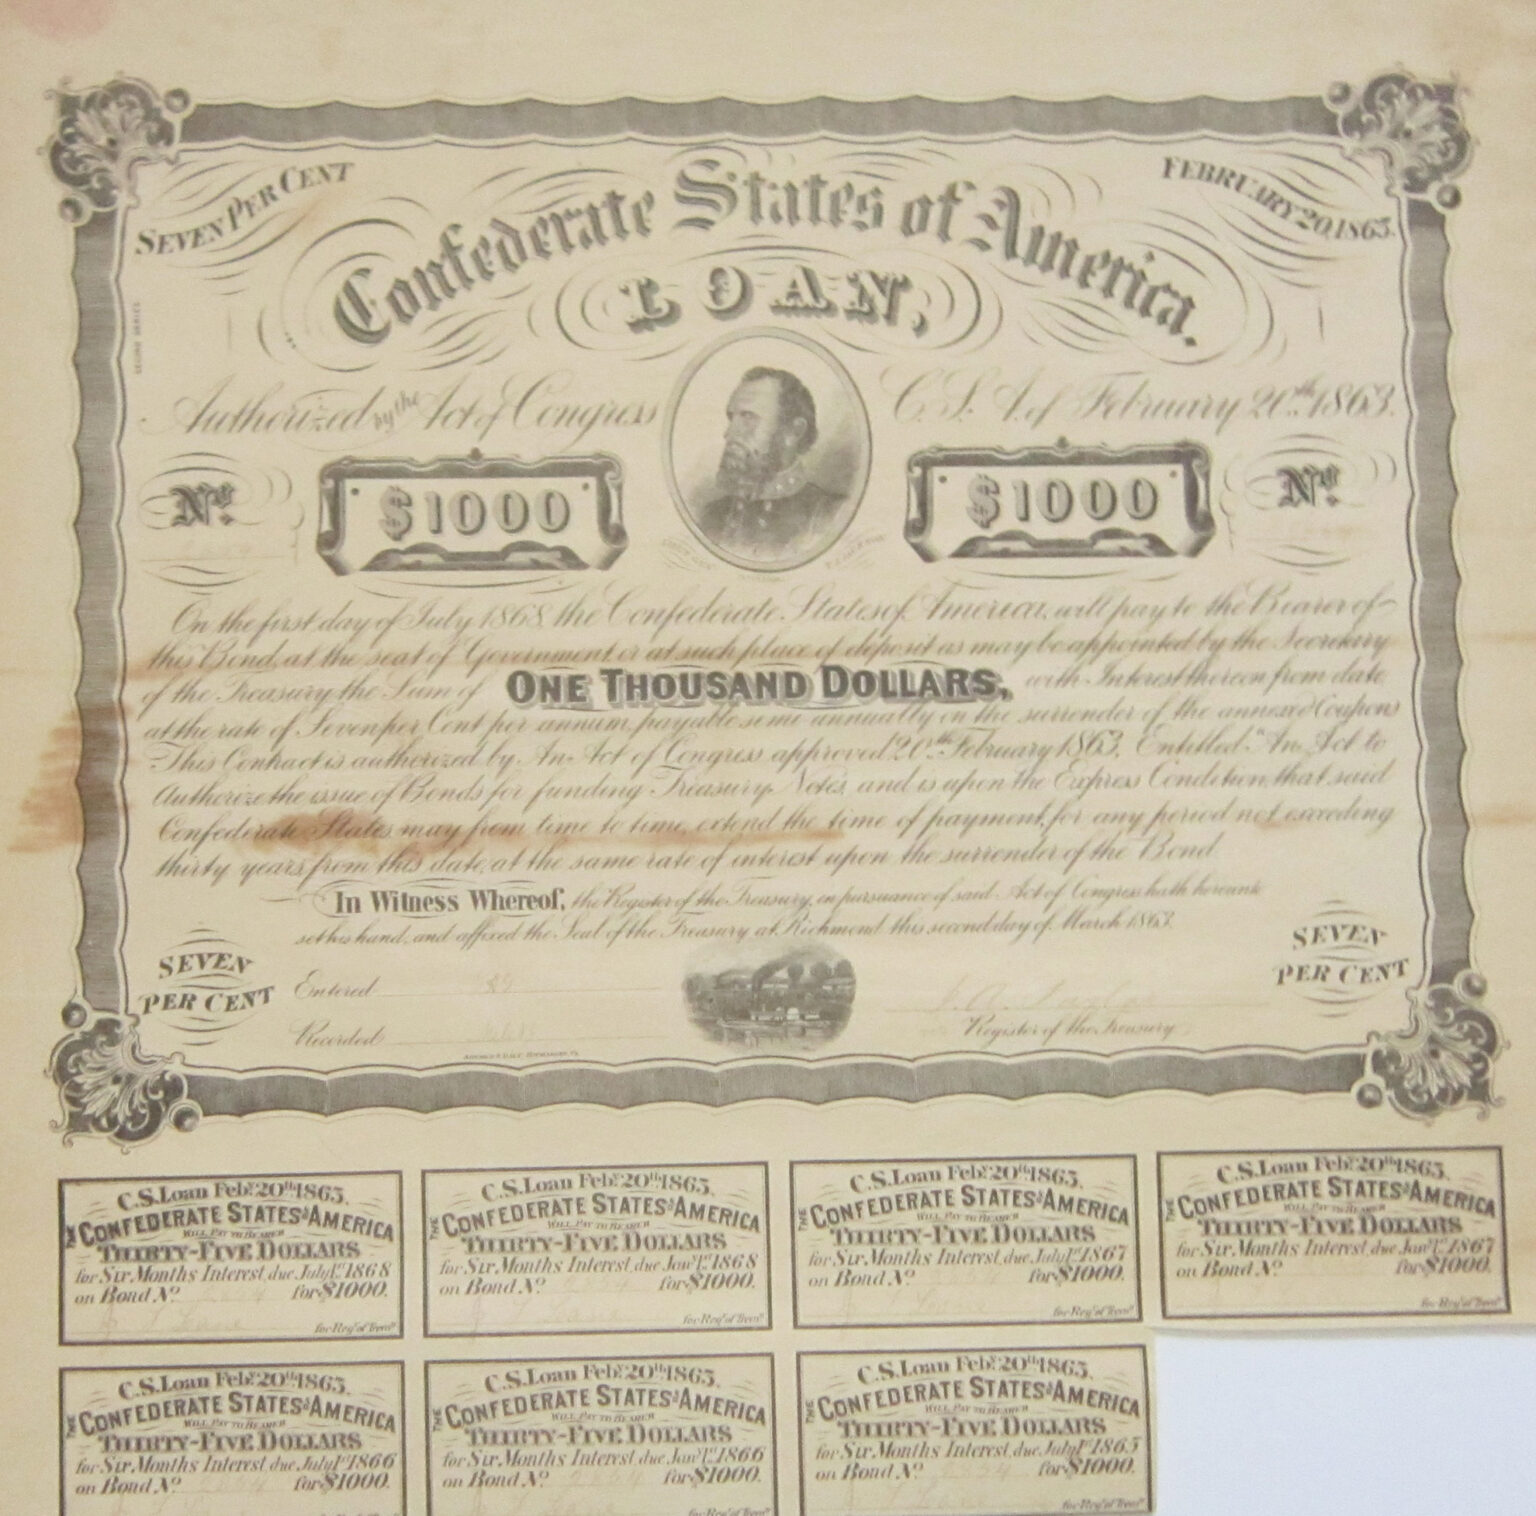 SEVEN PER CENT
FEBRUARY 20, 1863.
Confederate States of America.
LOAN,
SECOND SERIES
Authorized by the Act of Congress C.S.A. of February 20th 1863.
No.
$1000
$1000
No.
On the first day of July 1868, the Confederate States of America, will pay to the Bearer of
this Bond, at the seat of Government or at such place of deposit as may be appointed by the Secretary
of the Treasury the Sum of ONE THOUSAND DOLLARS, with Interest thereon from date
at the rate of Seven per Cent per annum, payable semi annually on the surrender of the annexed Coupons
This Contract is authorized by An Act of Congress approved 20th February 1863. Entitled "An Act to
Authorize the issue of Bonds for funding Treasury Notes, and is upon the Express Condition, that said
Confederate States may from time to time, extend the time of payment, for any period not exceeding
thirty years from this date, at the same rate of interest upon the surrender of the Bond
In Witness Whereof, the Register of the Treasury, in pursuance of said Act of Congress hath hereunto
set his hand, and affixed the Seal of the Treasury at Richmond this second day of March 1863.
SEVEN
PER CENT
Entered
Recorded
Register of the Treasury
SEVEN
PER CENT
C.S. Loan Feby. 20th 1863.
THE CONFEDERATE STATES OF AMERICA
WILL PAY TO BEARER
THIRTY-FIVE DOLLARS
for Six Months Interest, due July 1st 1868
on Bond No. for $1000.
for Regr. of Treasy.
C.S. Loan Feby. 20th 1863.
THE CONFEDERATE STATES OF AMERICA
WILL PAY TO BEARER
THIRTY-FIVE DOLLARS
for Six Months Interest, due Jany. 1st 1868
on Bond No. for $1000.
for Regr. of Treasy.
C.S. Loan Feby. 20th 1863.
THE CONFEDERATE STATES OF AMERICA
WILL PAY TO BEARER
THIRTY-FIVE DOLLARS
for Six Months Interest, due July 1st 1867
on Bond No. for $1000.
for Regr. of Treasy.
C.S. Loan Feby. 20th 1863.
THE CONFEDERATE STATES OF AMERICA
WILL PAY TO BEARER
THIRTY-FIVE DOLLARS
for Six Months Interest, due Jany. 1st 1867
on Bond No. for $1000.
for Regr. of Treasy.
C.S. Loan Feby. 20th 1863.
THE CONFEDERATE STATES OF AMERICA
WILL PAY TO BEARER
THIRTY-FIVE DOLLARS
for Six Months Interest, due July 1st 1866
on Bond No. for $1000.
C.S. Loan Feby. 20th 1863.
THE CONFEDERATE STATES OF AMERICA
WILL PAY TO BEARER
THIRTY-FIVE DOLLARS
for Six Months Interest, due Jany. 1st 1866
on Bond No. for $1000.
for Regr. of Treasy.
C.S. Loan Feby. 20th 1863.
THE CONFEDERATE STATES OF AMERICA
WILL PAY TO BEARER
THIRTY-FIVE DOLLARS
for Six Months Interest, due July 1st 1865
on Bond No. for $1000.
for Regr. of Treasy.